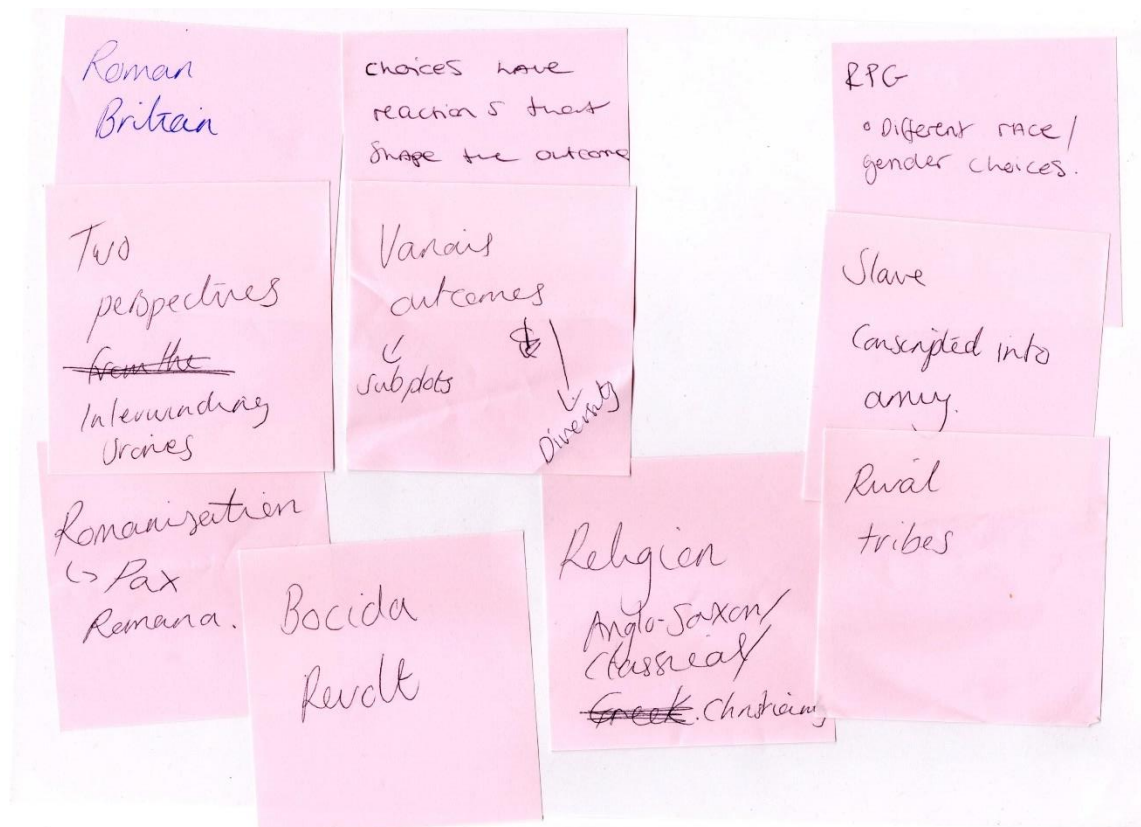 Roman
Britain
choices have
reactions that
shape the outcome
RPG
• Different race/
gender choices.
Two
perspectives
from the
Interwinding
Various
outcomes
↓ ↓
subplots
Diversity
Slave
Conscripted into
army.
Romanisation
↳ Pax
Romana.
Bocida
Revolt
Religion
Anglo-Saxon/
Classical/
Greek. Christianity
Rival
tribes